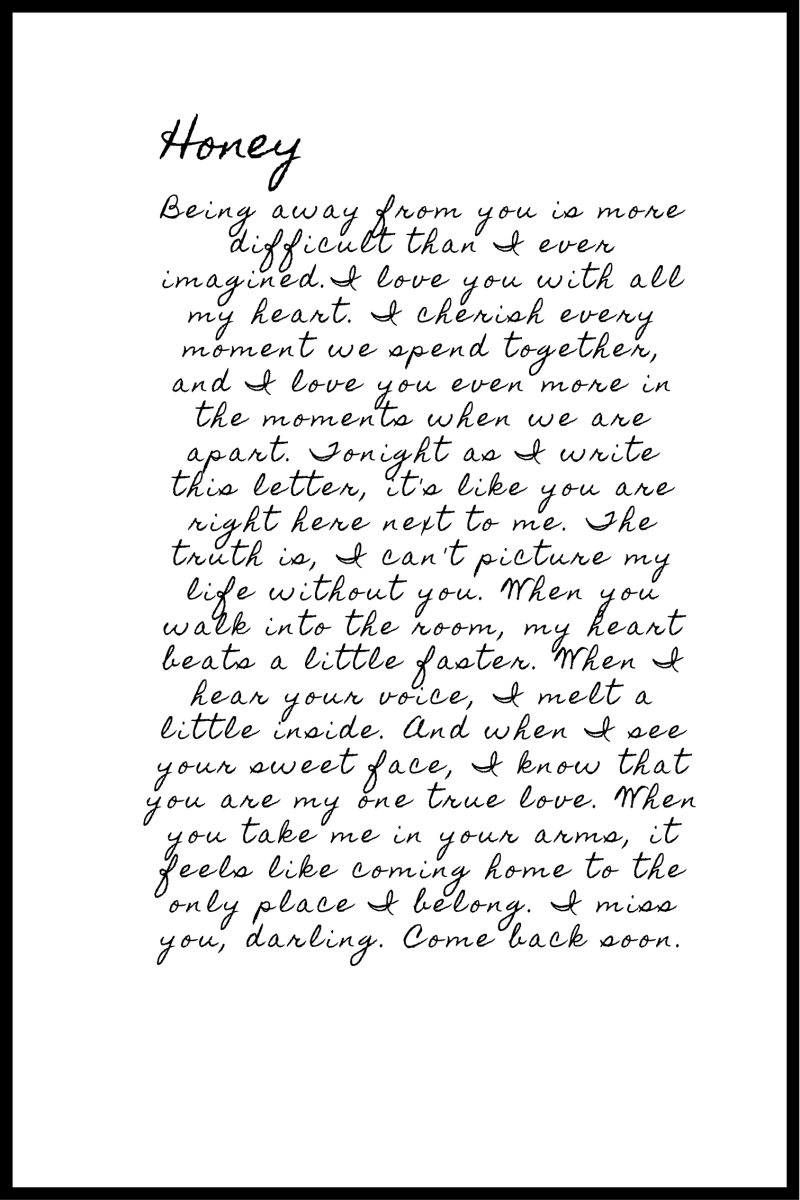 Honey
Being away from you is more
difficult than I ever
imagined. I love you with all
my heart. I cherish every
moment we spend together,
and I love you even more in
the moments when we are
apart. Tonight as I write
this letter, it's like you are
right here next to me. The
truth is, I can't picture my
life without you. When you
walk into the room, my heart
beats a little faster. When I
hear your voice, I melt a
little inside. And when I see
your sweet face, I know that
you are my one true love. When
you take me in your arms, it
feels like coming home to the
only place I belong. I miss
you, darling. Come back soon.